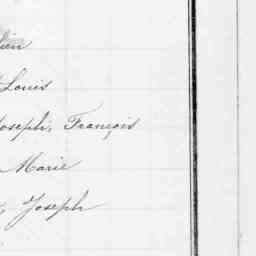 Louis
Joseph, François
Marie
Joseph